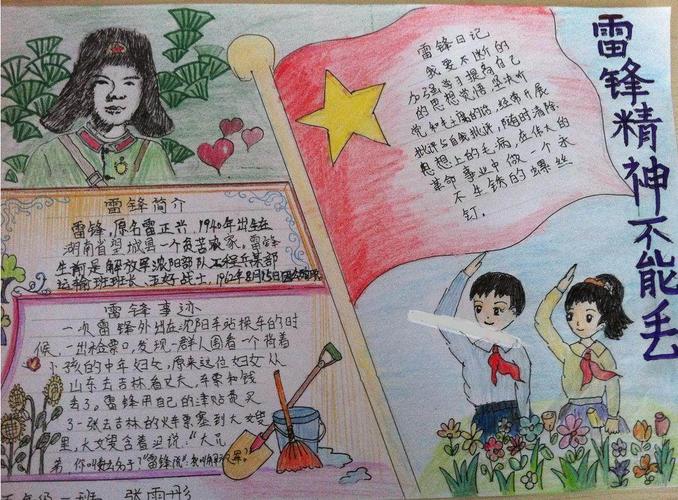 雷锋精神不能丢
雷锋日记
我要不断的
加强学习提高自己
的思想觉悟坚决听
党和毛主席的话经常开展
批评与自我批评，随时清除
思想上的毛病，在伟大的
革命事业中做一个永
不生锈的螺丝
钉.
雷锋简介
雷锋，原名雷正兴，1940年出生在
湖南省望城县一个贫苦农家。雷锋
生前是解放军沈阳部队工程兵某部
运输班班长、五好战士，1962年8月15日因公殉职
雷锋事迹
一次雷锋外出在沈阳车站换车的时
候，一出检票口，发现一群人围着一个背着
小孩的中年妇女，原来这位妇女从
山东去吉林看丈夫，车票和钱
丢了。雷锋用自己的津贴费买
了一张去吉林的火车票塞到大嫂
里，大嫂含着泪说："大兄
弟，你叫什么名字
一班 张雨彤